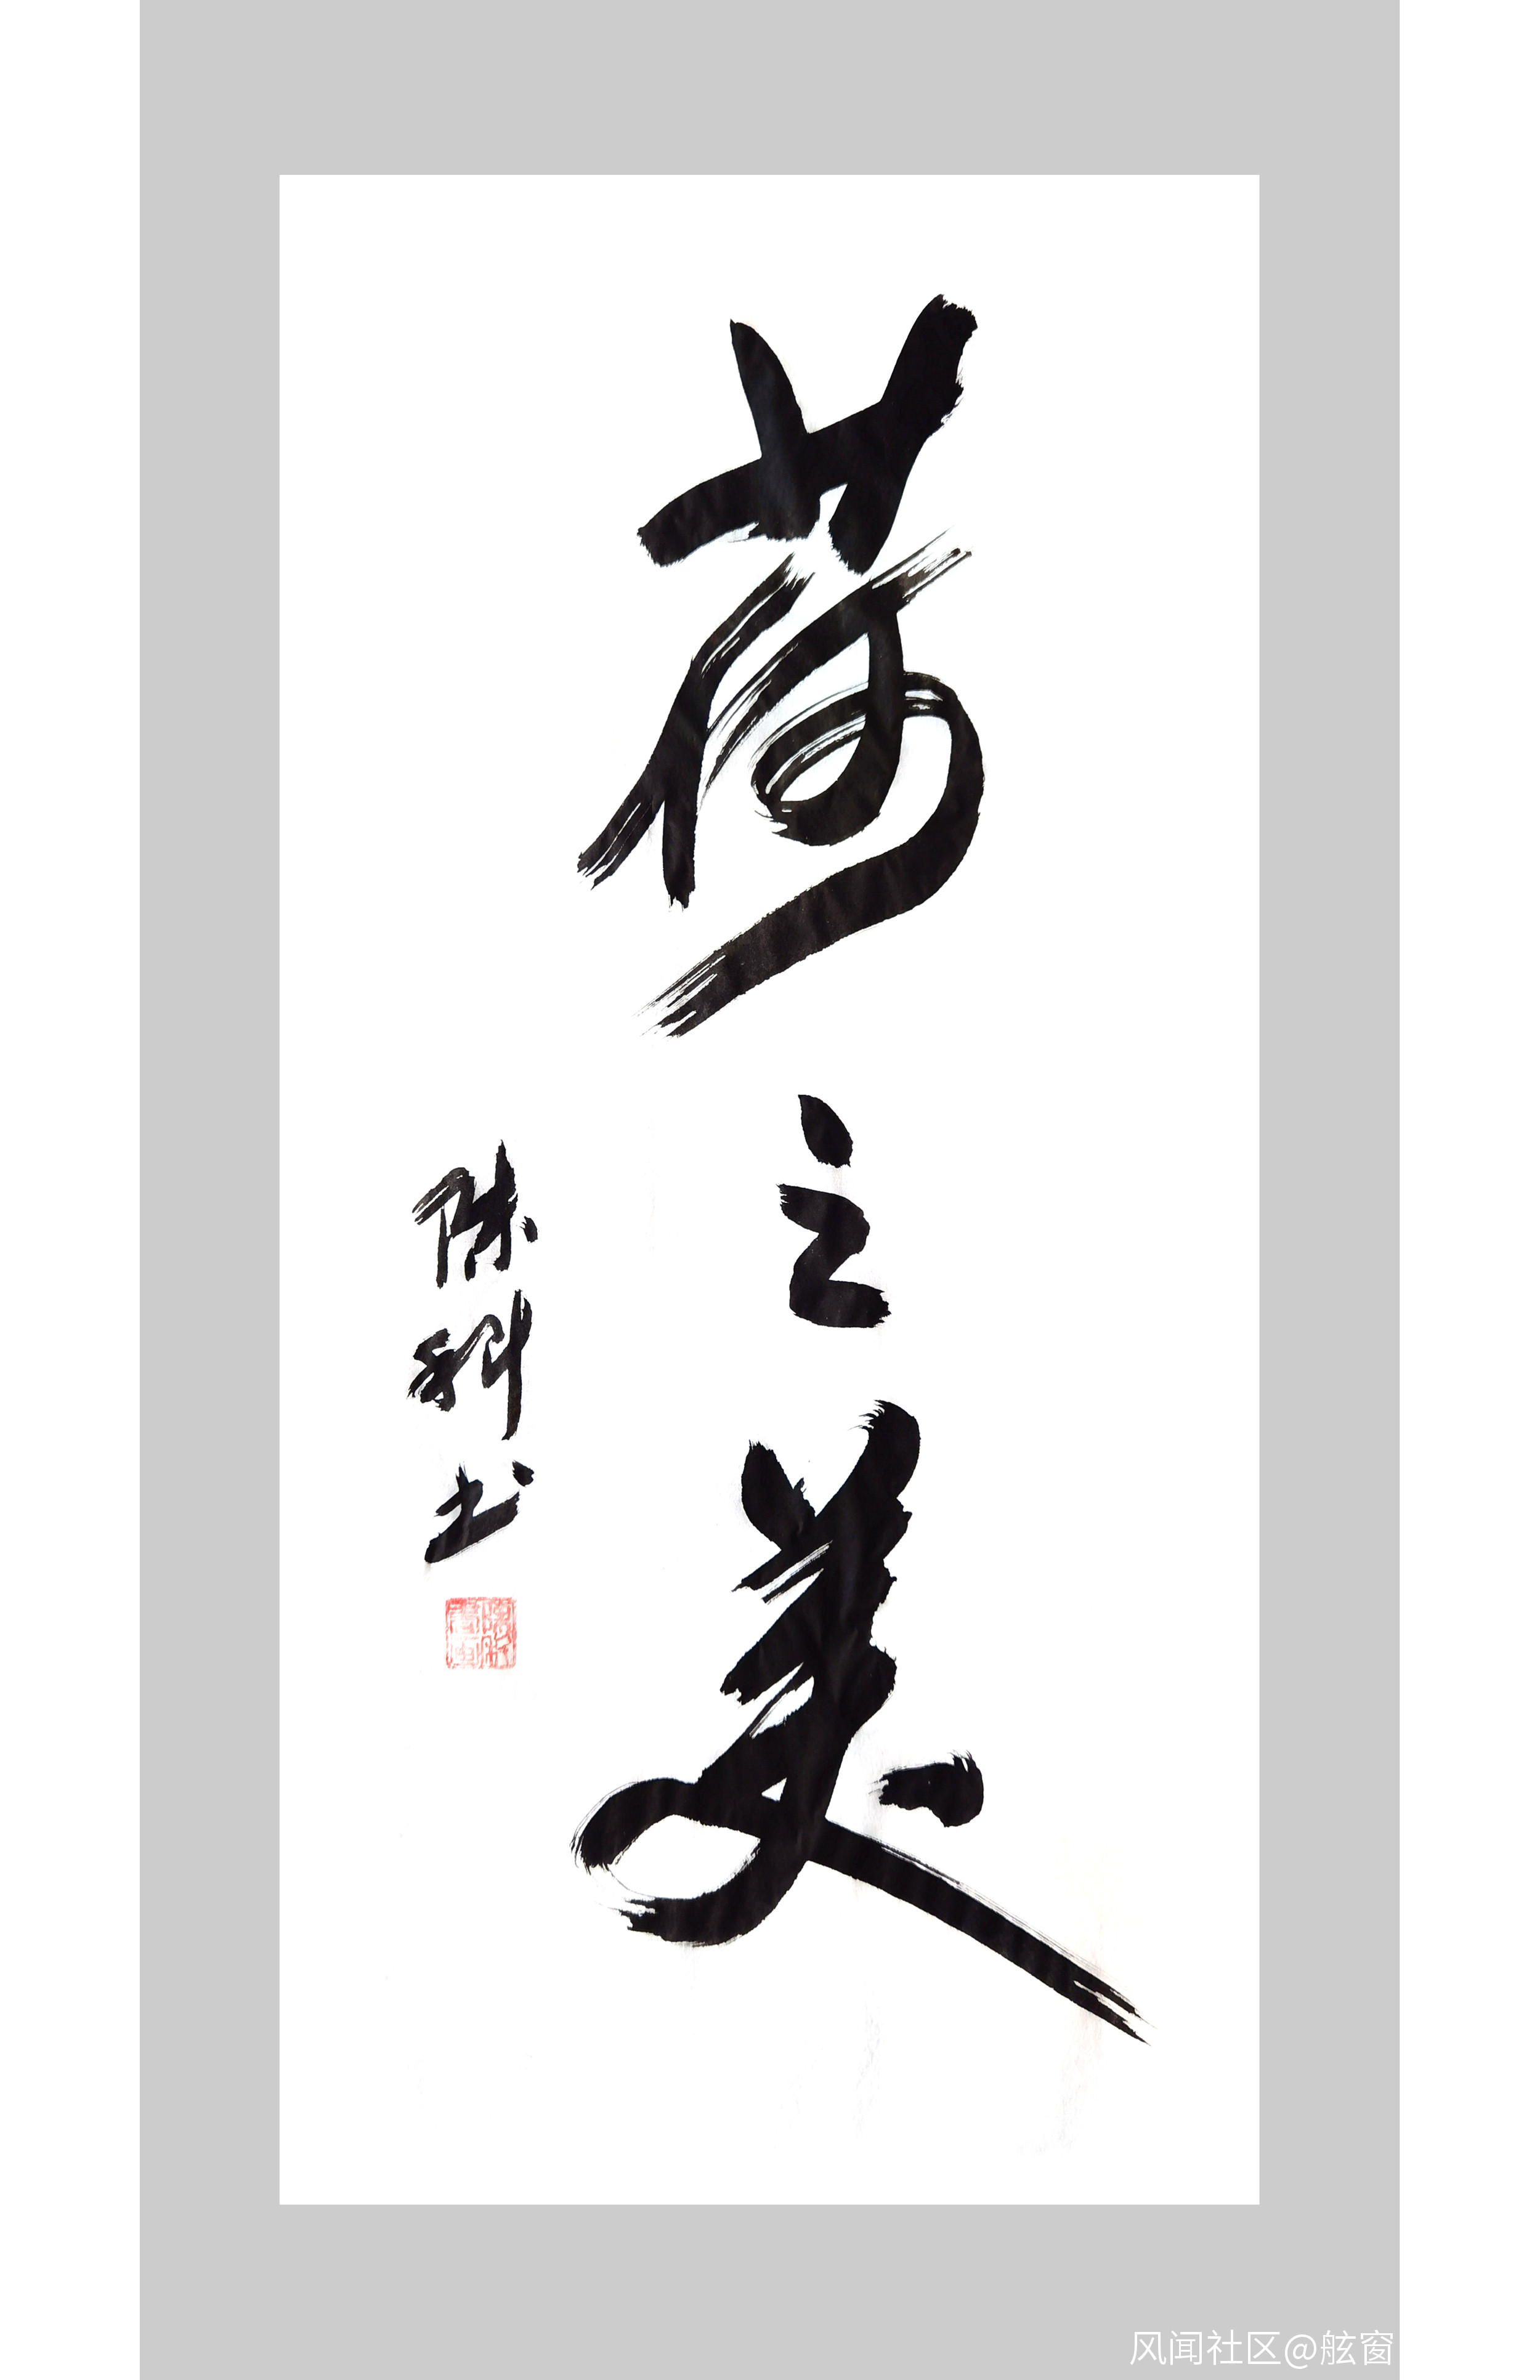 荷之美
陈科书
风闻社区@舷窗